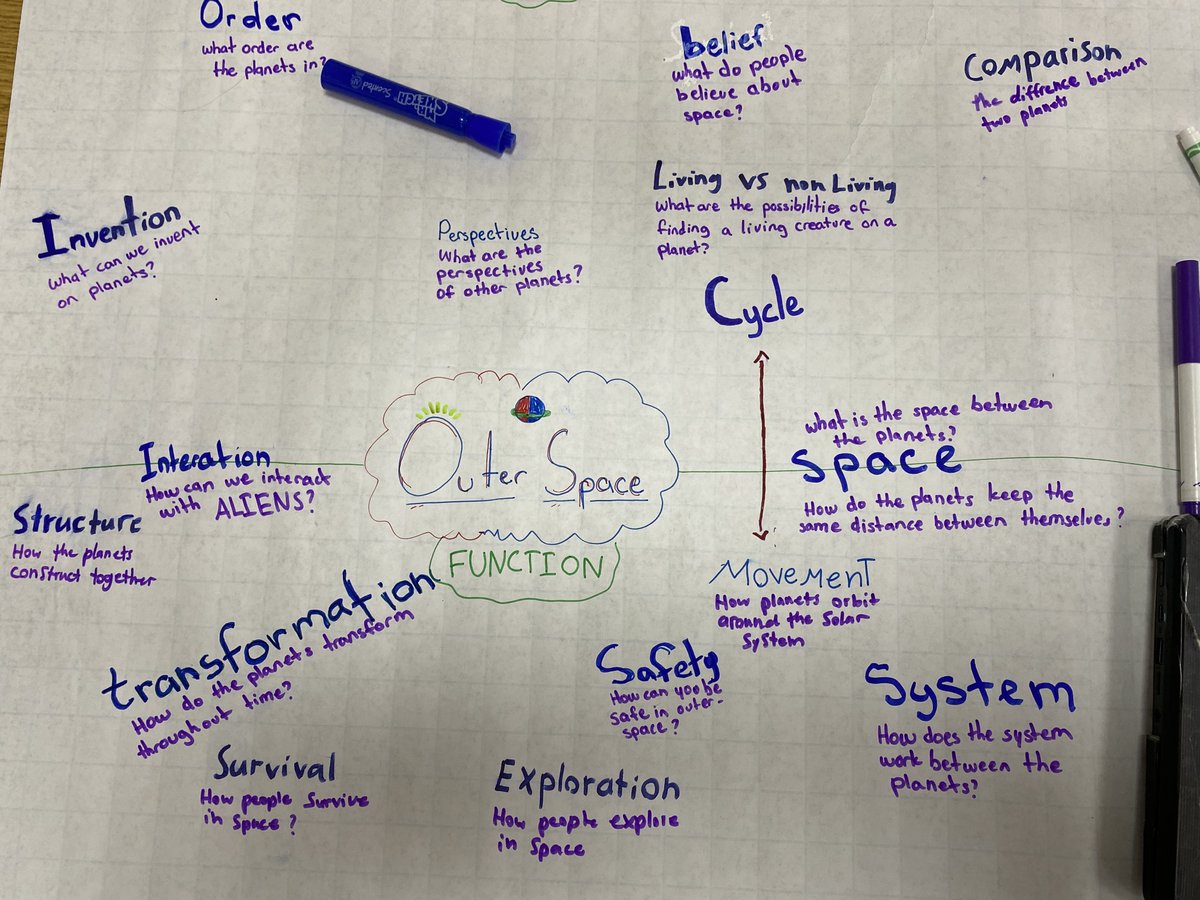 Order
what order are
the planets in?
belief
what do people
believe about
space?
Comparison
the diffrence between
two planets
MR.
SKETCH®
Scented
Invention
what can we invent
on planets?
Perspectives
What are the
perspectives
of other planets?
Living vs non Living
What are the possibilities of
finding a living creature on a
planet?
Cycle
Outer Space
FUNCTION
what is the space between
the planets?
Space
How do the planets keep the
same distance between themselves?
Interation
How can we interact
with ALIENS?
Structure
How the planets
construct together
transformation
How do the planets transform
throughout time?
Movement
How planets orbit
around the Solar
System
Safety
How can you be
safe in outer-
space?
System
How does the system
work between the
planets?
Survival
How people Survive
in Space?
Exploration
How people explore
in Space